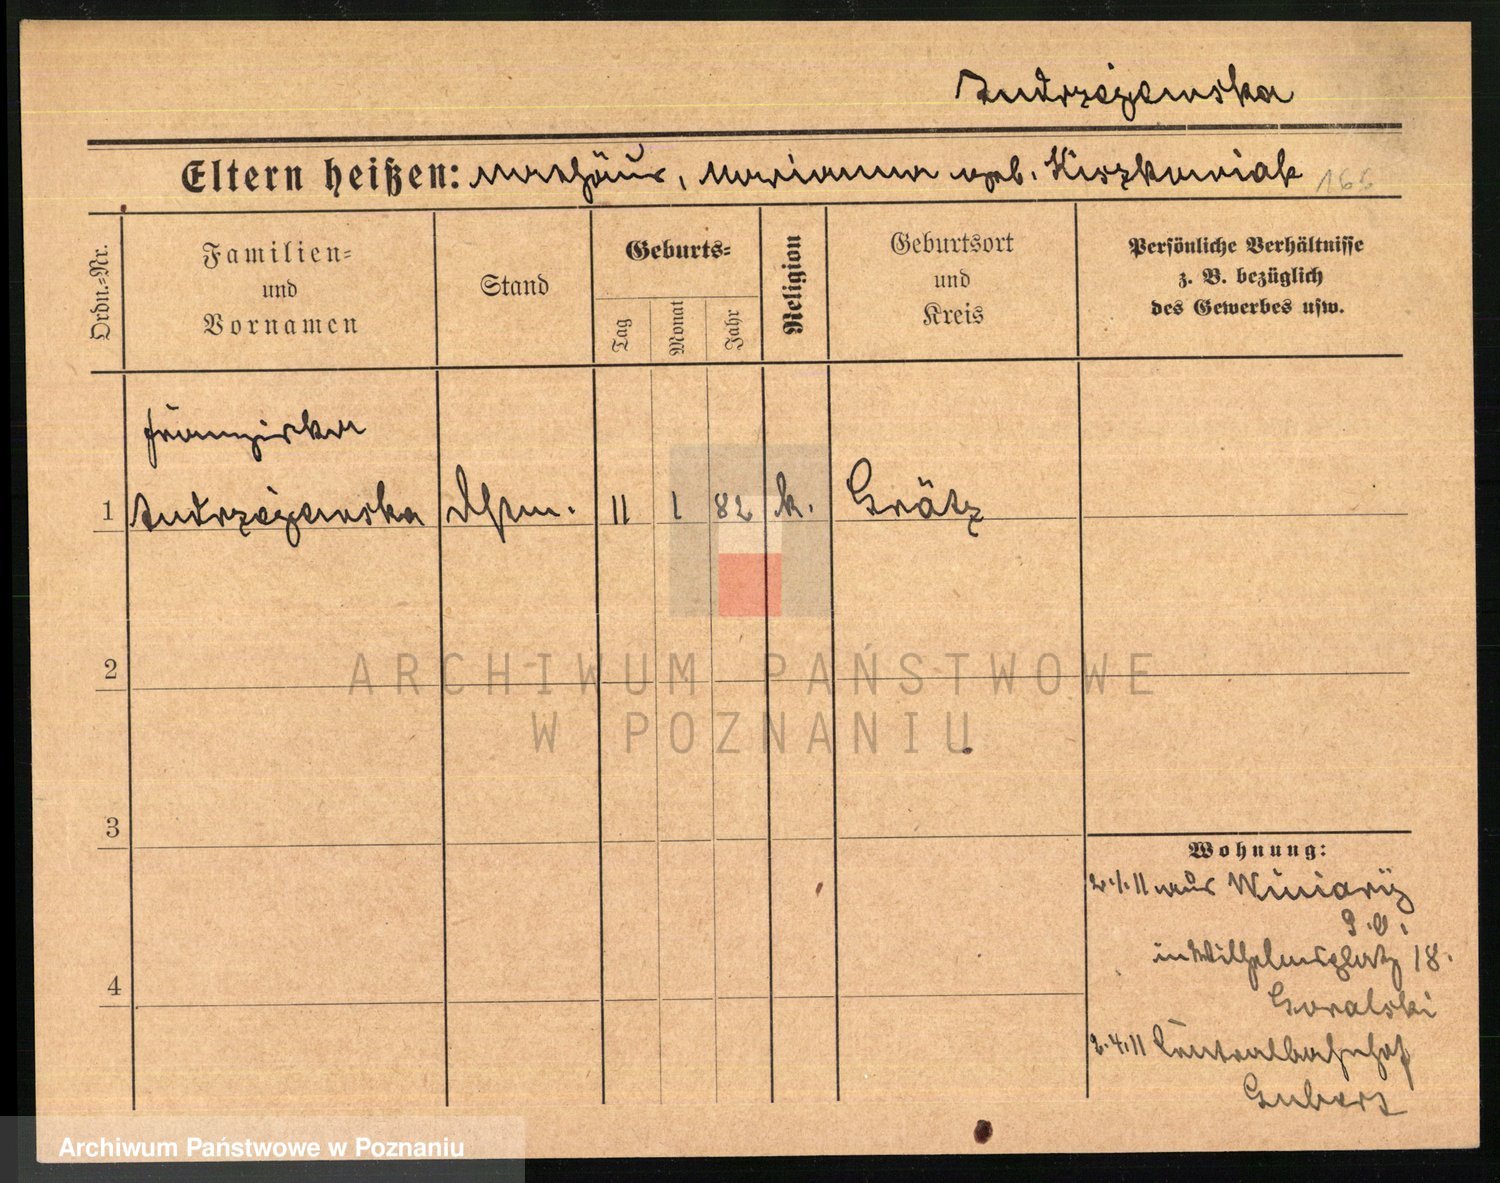 Andrzejewska
Eltern heißen: Mathäus, Marianna geb. Kiszkowiak 166
Ordn.-Nr.
Familien- und Vornamen
Stand
Geburts-
Tag
Monat
Jahr
Religion
Geburtsort und Kreis
Persönliche Verhältnisse
z. B. bezüglich
des Gewerbes usw.
Franziska
1 Andrzejewska 11 1 82 k. Grätz
2
3
4
Wohnung:
2.1.11 aus Winiary
P.O.
in Wilhelmsplatz 18.
Goralski
2.4.11 Centralbahnhof
ARCHIWUM PAŃSTWOWE
W POZNANIU
Archiwum Państwowe w Poznaniu